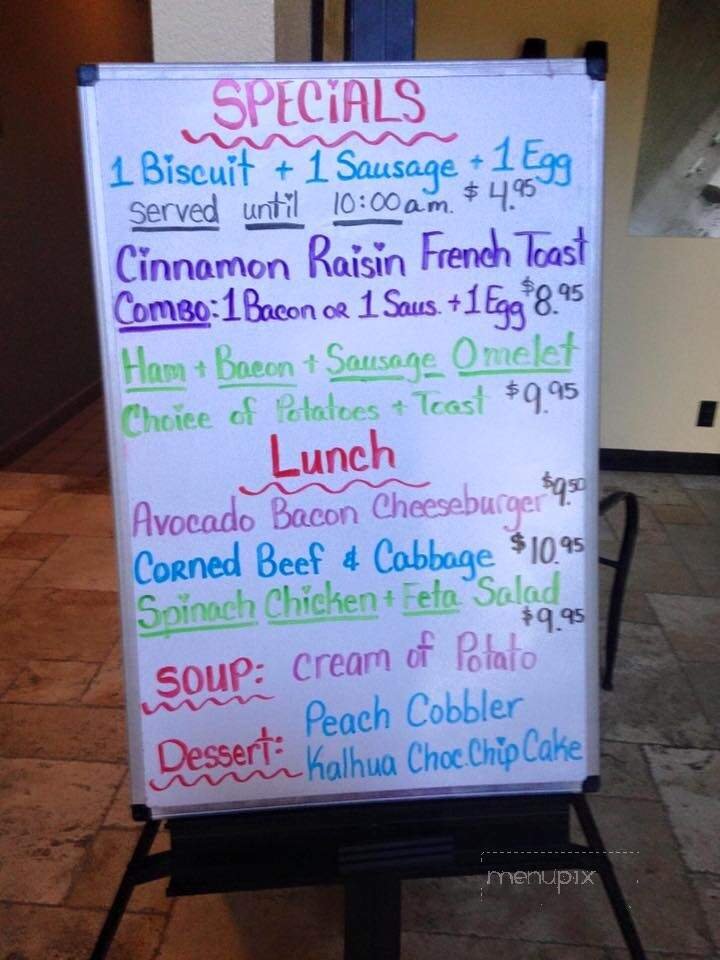 SPECIALS
1 Biscuit + 1 Sausage + 1 Egg
served until 10:00 a.m. $4.95
Cinnamon Raisin French Toast
Combo: 1 Bacon or 1 Saus. + 1 Egg $8.95
Ham + Bacon + Sausage Omelet
Choice of Potatoes + Toast $9.95
Lunch
Avocado Bacon Cheeseburger $9.50
Corned Beef & Cabbage $10.95
Spinach Chicken + Feta Salad
$9.95
SOUP: Cream of Potato
Dessert: Peach Cobbler
Kalhua Choc. Chip Cake
menupix